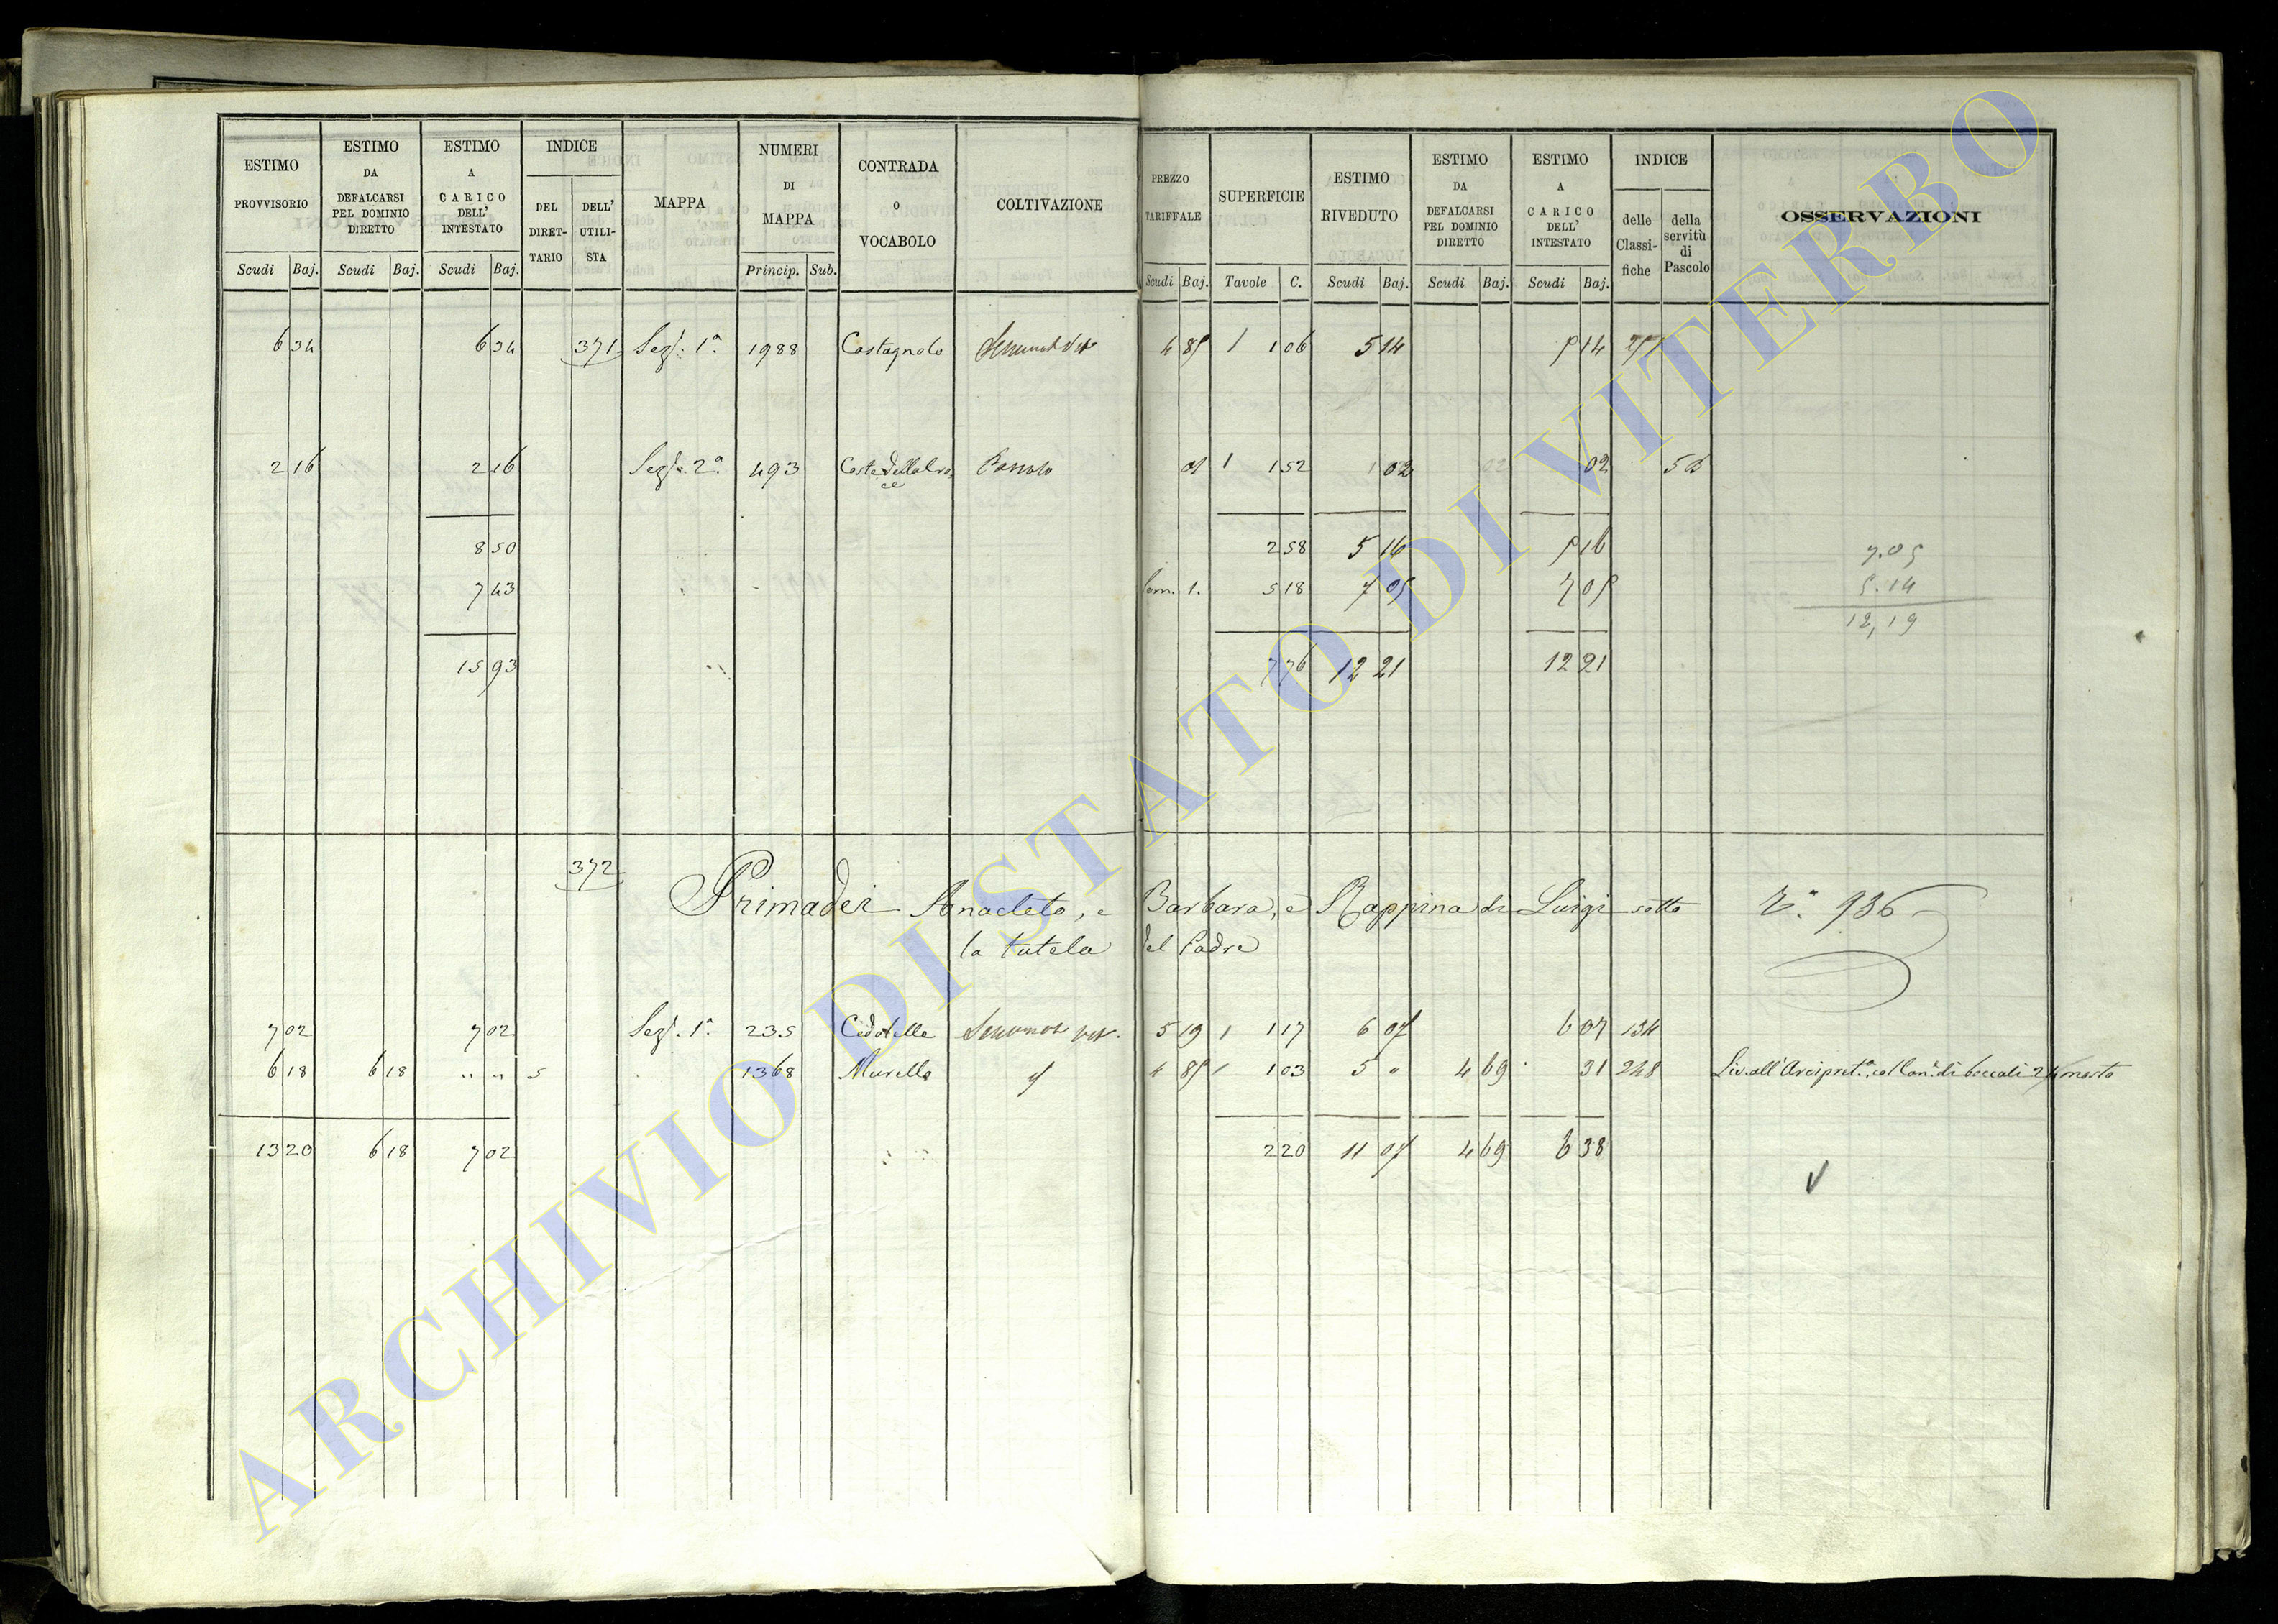 ESTIMO PROVVISORIO Scudi Baj.
ESTIMO DA DEFALCARSI PEL DOMINIO DIRETTO Scudi Baj.
ESTIMO A CARICO DELL' INTESTATO Scudi Baj.
INDICE DEL DIRETTARIO DELL' UTILISTA
MAPPA
NUMERI DI MAPPA Princip. Sub.
CONTRADA O VOCABOLO
COLTIVAZIONE
PREZZO TARIFFALE Scudi Baj.
SUPERFICIE Tavole C.
ESTIMO RIVEDUTO Scudi Baj.
ESTIMO DA DEFALCARSI PEL DOMINIO DIRETTO Scudi Baj.
ESTIMO A CARICO DELL' INTESTATO Scudi Baj.
INDICE delle Classifiche della servitù di Pascolo
OSSERVAZIONI
6 34 6 34 371 Sez. 1ª 1988 Castagnolo 4 85 1 1 06 5 14 5 14
2 16 2 16 Sez. 2ª 493 Pascolo 1 1 52 02 02
8 50 2 58 5 16 5 16
7 43 5 18 7 05 7 05
15 93 7 76 12 21 12 21
7.05
5.14
12,19
372 Primadei Anacleto, e Barbara, e Rappina di Luigi sotto
936
la tutela del Padre
7 02 7 02 Sez. 1ª 235 5 19 1 1 17 6 07 6 07 134
6 18 6 18 " " 5 1368 Murella 4 85 1 1 03 5 " 4 69 31 248 di boccali 24 mosto
13 20 6 18 7 02 2 20 11 07 4 69 6 38
ARCHIVIO DI STATO DI VITERBO